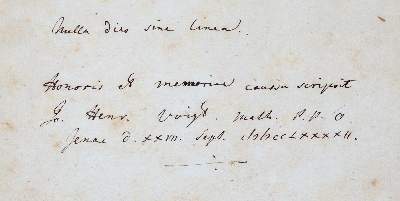 Nulla dies sine linea.
Honoris et memoriae caussa scripsit
Jo. Henr. Voigt. Math. P. P. O
Jenae d. XXVII. Sept. MDCCLXXXXII.